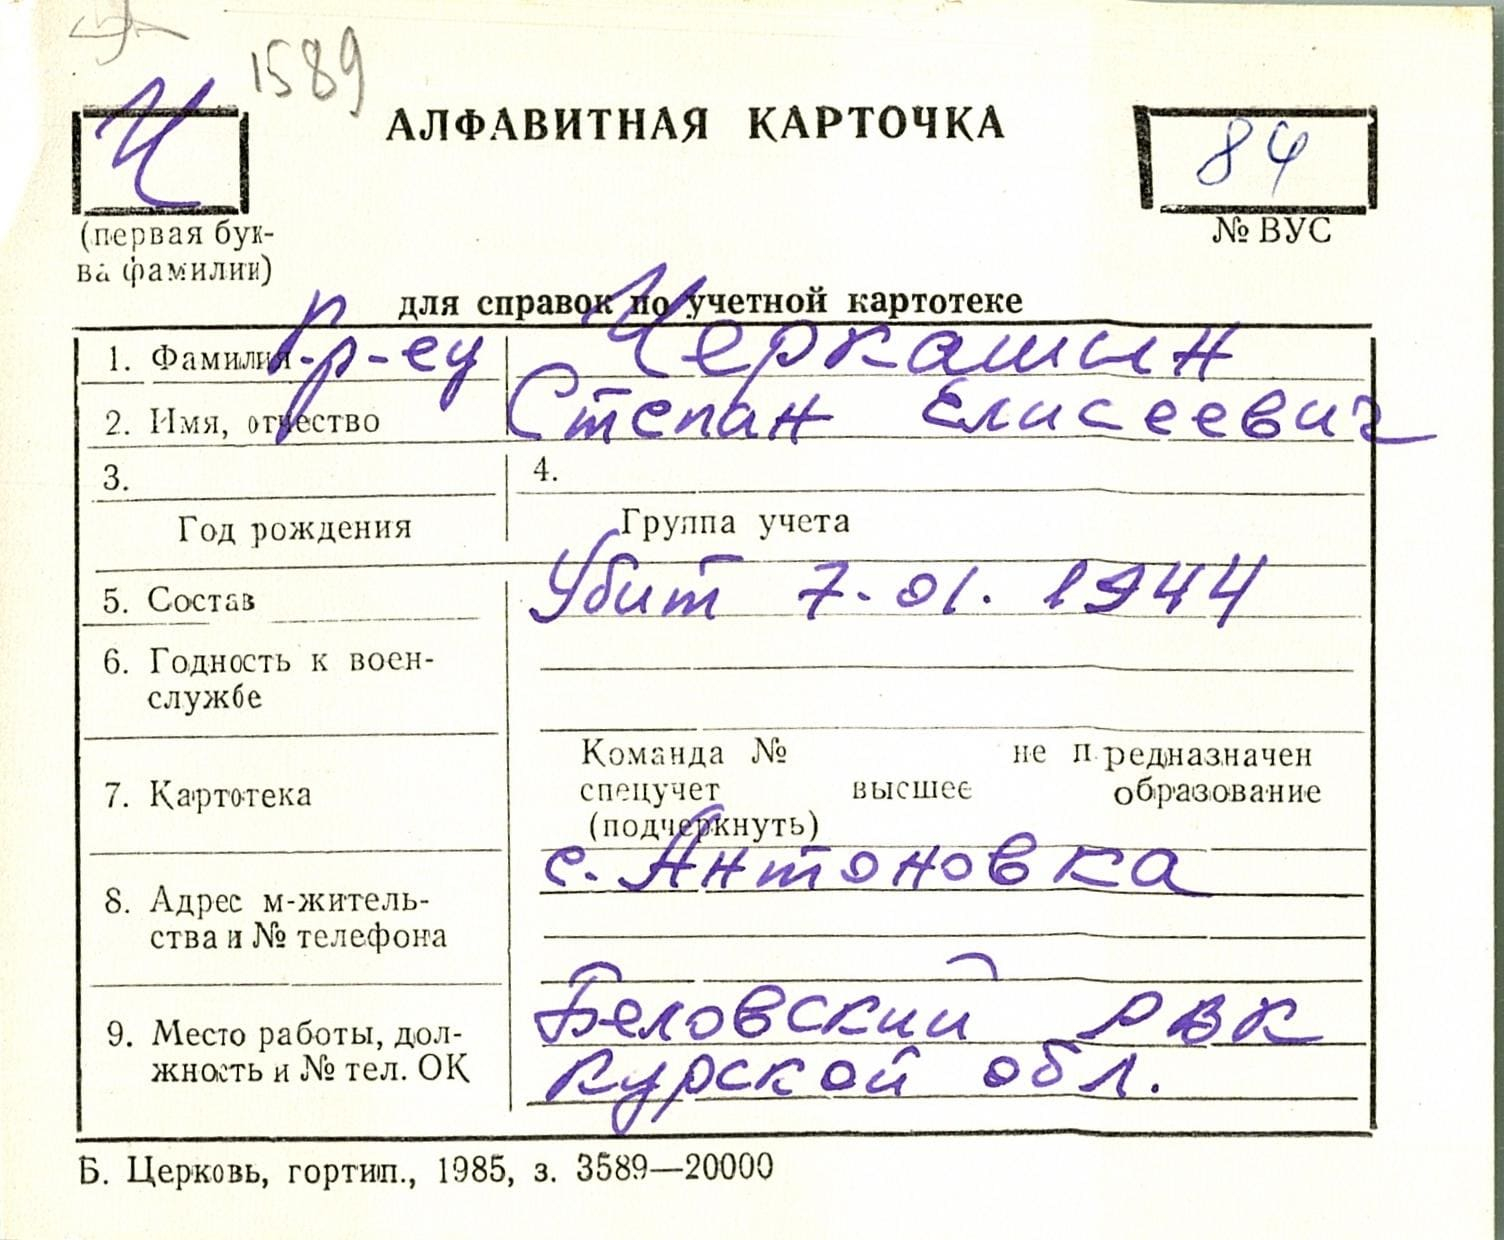 1589
Ч
АЛФАВИТНАЯ КАРТОЧКА
84
(первая бук-
ва фамилии)
№ ВУС
для справок по учетной картотеке
1. Фамилия Гр-ец Черкашин
2. Имя, отчество Степан Елисеевич
3. 4.
Год рождения Группа учета
5. Состав Убит 7-01.1944
6. Годность к воен-
службе
Команда № не предназначен
7. Картотека спецучет высшее образование
(подчеркнуть)
с. Антоновка
8. Адрес м-житель-
ства и № телефона
Беловский РВК
9. Место работы, дол-
жность и № тел. ОК Курской обл.
Б. Церковь, гортип., 1985, з. 3589—20000